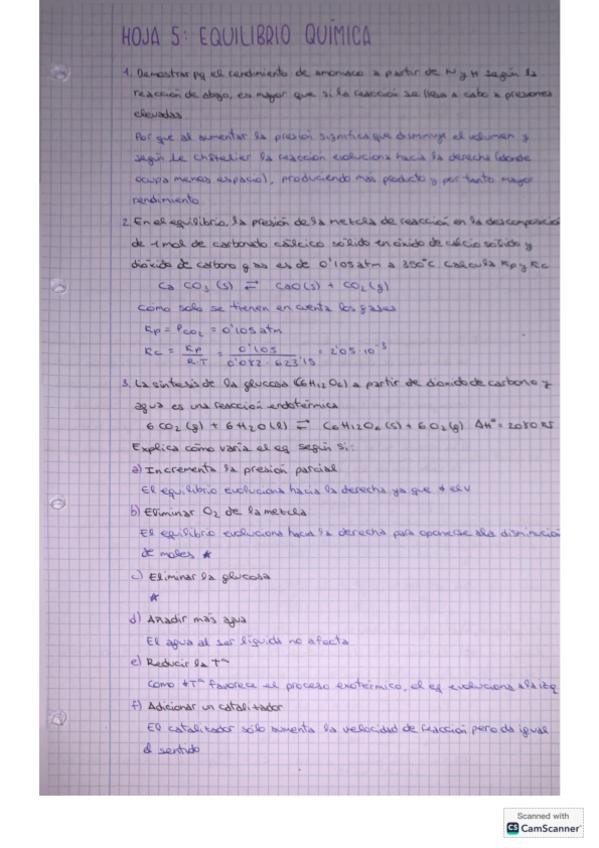 HOJA 5: EQUILIBRIO QUÍMICA
1. Demostrar pq el rendimiento de amoniaco a partir de N y H según la
reacción de abajo, es mayor que si la reacción se lleva a cabo a presiones
elevadas
Por que al aumentar la presión significa que disminuye el volumen y
según Le Châtelier la reacción evoluciona hacia la derecha (donde
ocupa menos espacio), produciendo más producto y por tanto mayor
rendimiento
2. En el equilibrio, la presión de la mezcla de reacción en la descomposición
de 1 mol de carbonato cálcico sólido en óxido de calcio sólido y
dióxido de carbono gas es de 0'105 atm a 350°C. Calcula Kp y Kc
Ca CO3 (s) ⇄ CaO(s) + CO2 (g)
Como solo se tienen en cuenta los gases
Kp = PCO2 = 0'105 atm
Kc = Kp / R·T = 0'105 / 0'082 · 623'15 = 2'05·10⁻³
3. La síntesis de la glucosa (C6H12O6) a partir de dióxido de carbono y
agua es una reacción endotérmica
6 CO2 (g) + 6 H2O (l) ⇄ C6H12O6 (s) + 6 O2 (g) ΔHº = 2080 KJ
Explica cómo varía el eq según si:
a) Incrementa la presión parcial
El equilibrio evoluciona hacia la derecha ya que ↓ el V
b) Eliminar O2 de la mezcla
El equilibrio evoluciona hacia la derecha para oponerse a la disminución
de moles *
c) Eliminar la glucosa
*
d) Añadir más agua
El agua al ser líquida no afecta
e) Reducir la Tª
Como ↓Tª favorece el proceso exotérmico, el eq evoluciona a la izq
f) Adicionar un catalizador
El catalizador sólo aumenta la velocidad de reacción pero da igual
el sentido
Scanned with
CS CamScanner